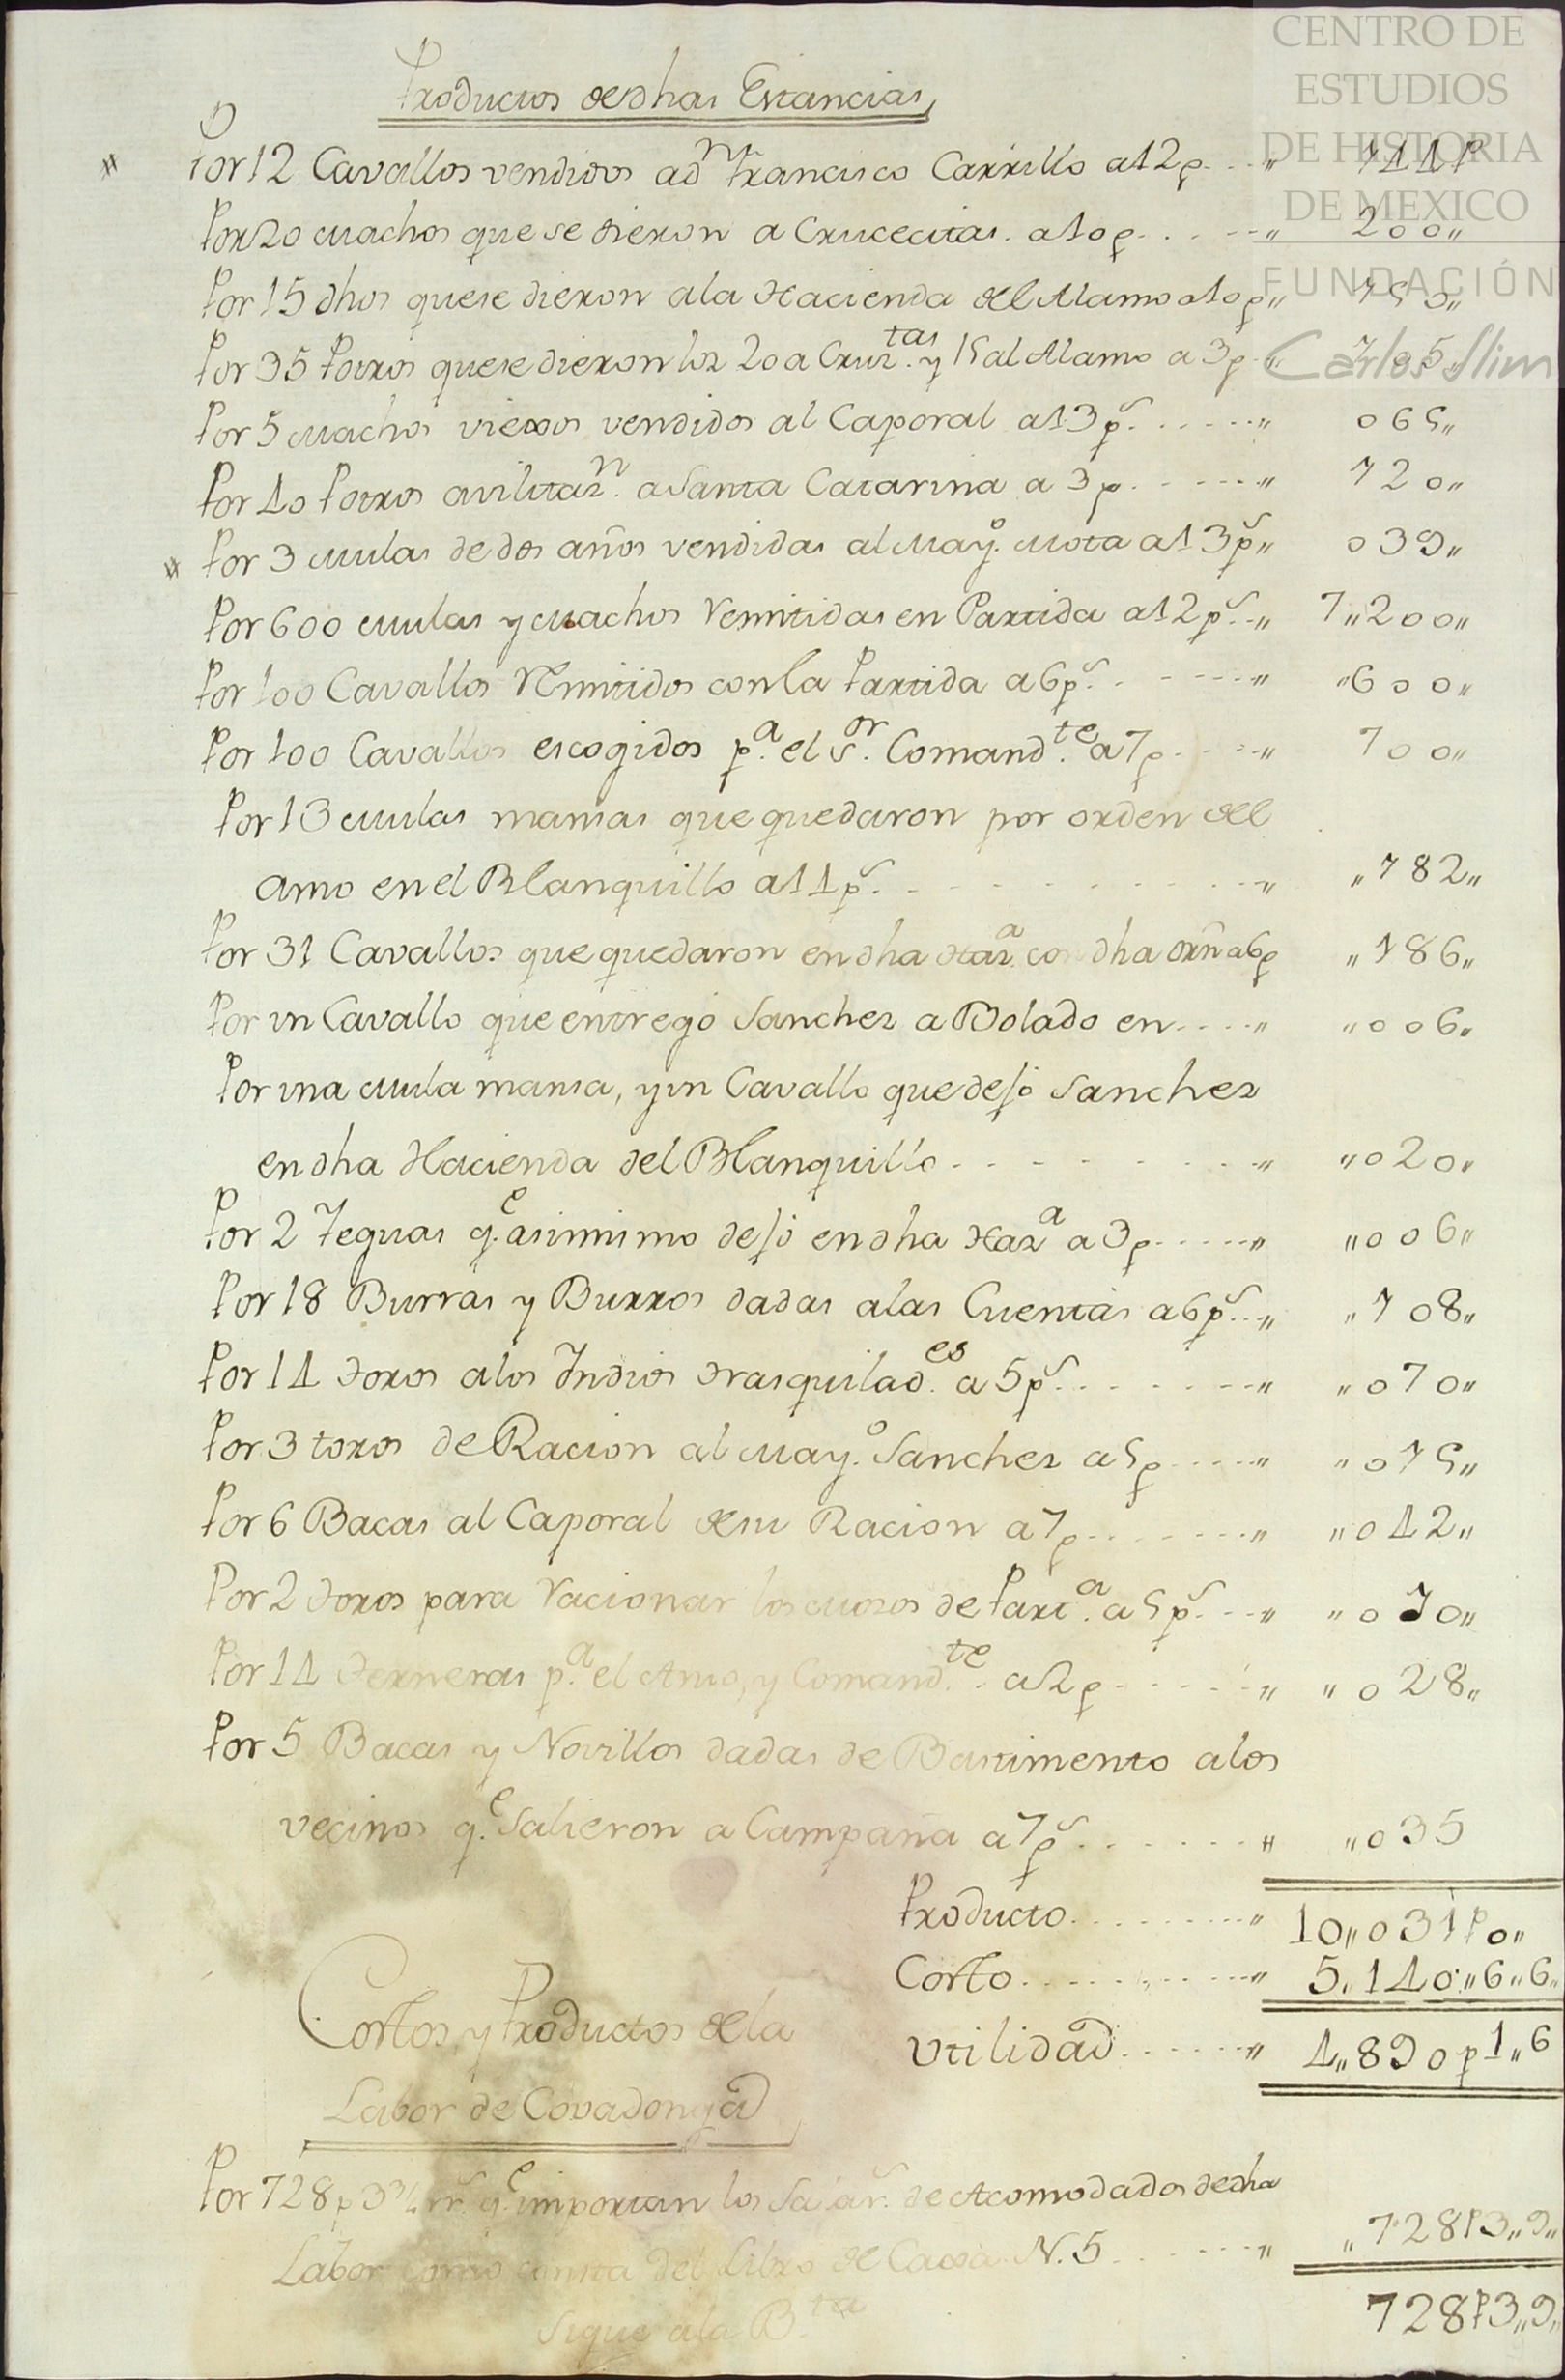 CENTRO DE
ESTUDIOS
DE HISTORIA
DE MEXICO
FUNDACIÓN
Carlos Slim
Productos dedhas Estancias,
Por 12 Cavallos vendidos a dn Francisco Carrillo a 12 p....,, 144 P
Por 20 machos que se dieron a Crucecitas. a 10 p......,, 200,,
Por 15 dhos quese dieron ala Hacienda del Alamo a 10 p,, 150,,
Por 35 Potros quese dieron los 20 a Cruz.tas y 15 al Alamo a 3 p.,, 105,,
Por 5 machos viexos vendidos al Caporal a 13 ps.......,, 065,,
Por 40 Potros avilitaz.n a Santa Catarina a 3 p.......,, 120,,
Por 3 mulas de dos años vendidas al May.o Mota a 13 ps,, 039,,
Por 600 mulas y machos remitidas en Partida a 12 ps..,, 7,,200,,
Por 100 Cavallos remitidos con la Partida a 6 ps.......,, ,,600,,
Por 100 Cavallos escogidos p.a el S.or Comand.te a 7 p.....,, 700,,
Por 13 mulas mansas que quedaron por orden del
amo en el Blanquillo a 14 ps...........,, ,,182,,
Por 31 Cavallos que quedaron en dha Haz.a con dha orñ a 6 p ,,186,,
Por vn Cavallo que entregó Sanchez a Bolado en....,, ,,006,,
Por vna mula mansa, y vn Cavallo que dejó Sanchez
en dha Hacienda del Blanquillo..........,, ,,020,,
Por 2 Yeguas q.e asimimo dejó en dha Haz.a a 3 p.....,, ,,006,,
Por 18 Burras y Burros dadas alas Cuentas a 6 ps...,, ,,108,,
Por 14 toros alos Indios trasquilad.es a 5 ps.......,, ,,070,,
Por 3 toros de Racion al May.o Sanchez a 5 p.....,, ,,015,,
Por 6 Bacas al Caporal desu Racion a 7 p.......,, ,,042,,
Por 2 toros para racionar los mozos de Part.a a 5 ps....,, ,,010,,
Por 14 terneras p.a el Amo, y Comand.te a 2 p......,, ,,028,,
Por 5 Bacas y Novillos dadas de Bastimento alos
vecinos q.e Salieron a Campaña a 7 ps.......,, ,,035
Producto.........,, 10,,031 P 0,,
Costo..........,, 5,140,,6,,6,,
Vtilidad......,, 4,,890 p 1,,6
Costos, y Productos dela
Labor de Covadonga
Por 728 p 3 3/4 rrs. q.e importan los Salar.s de Acomodados dedha
Labor como consta del Libro de Caxa N. 5......,, ,,728 P 3,,9,,
728 P 3,,9,,
Sigue ala B.ta